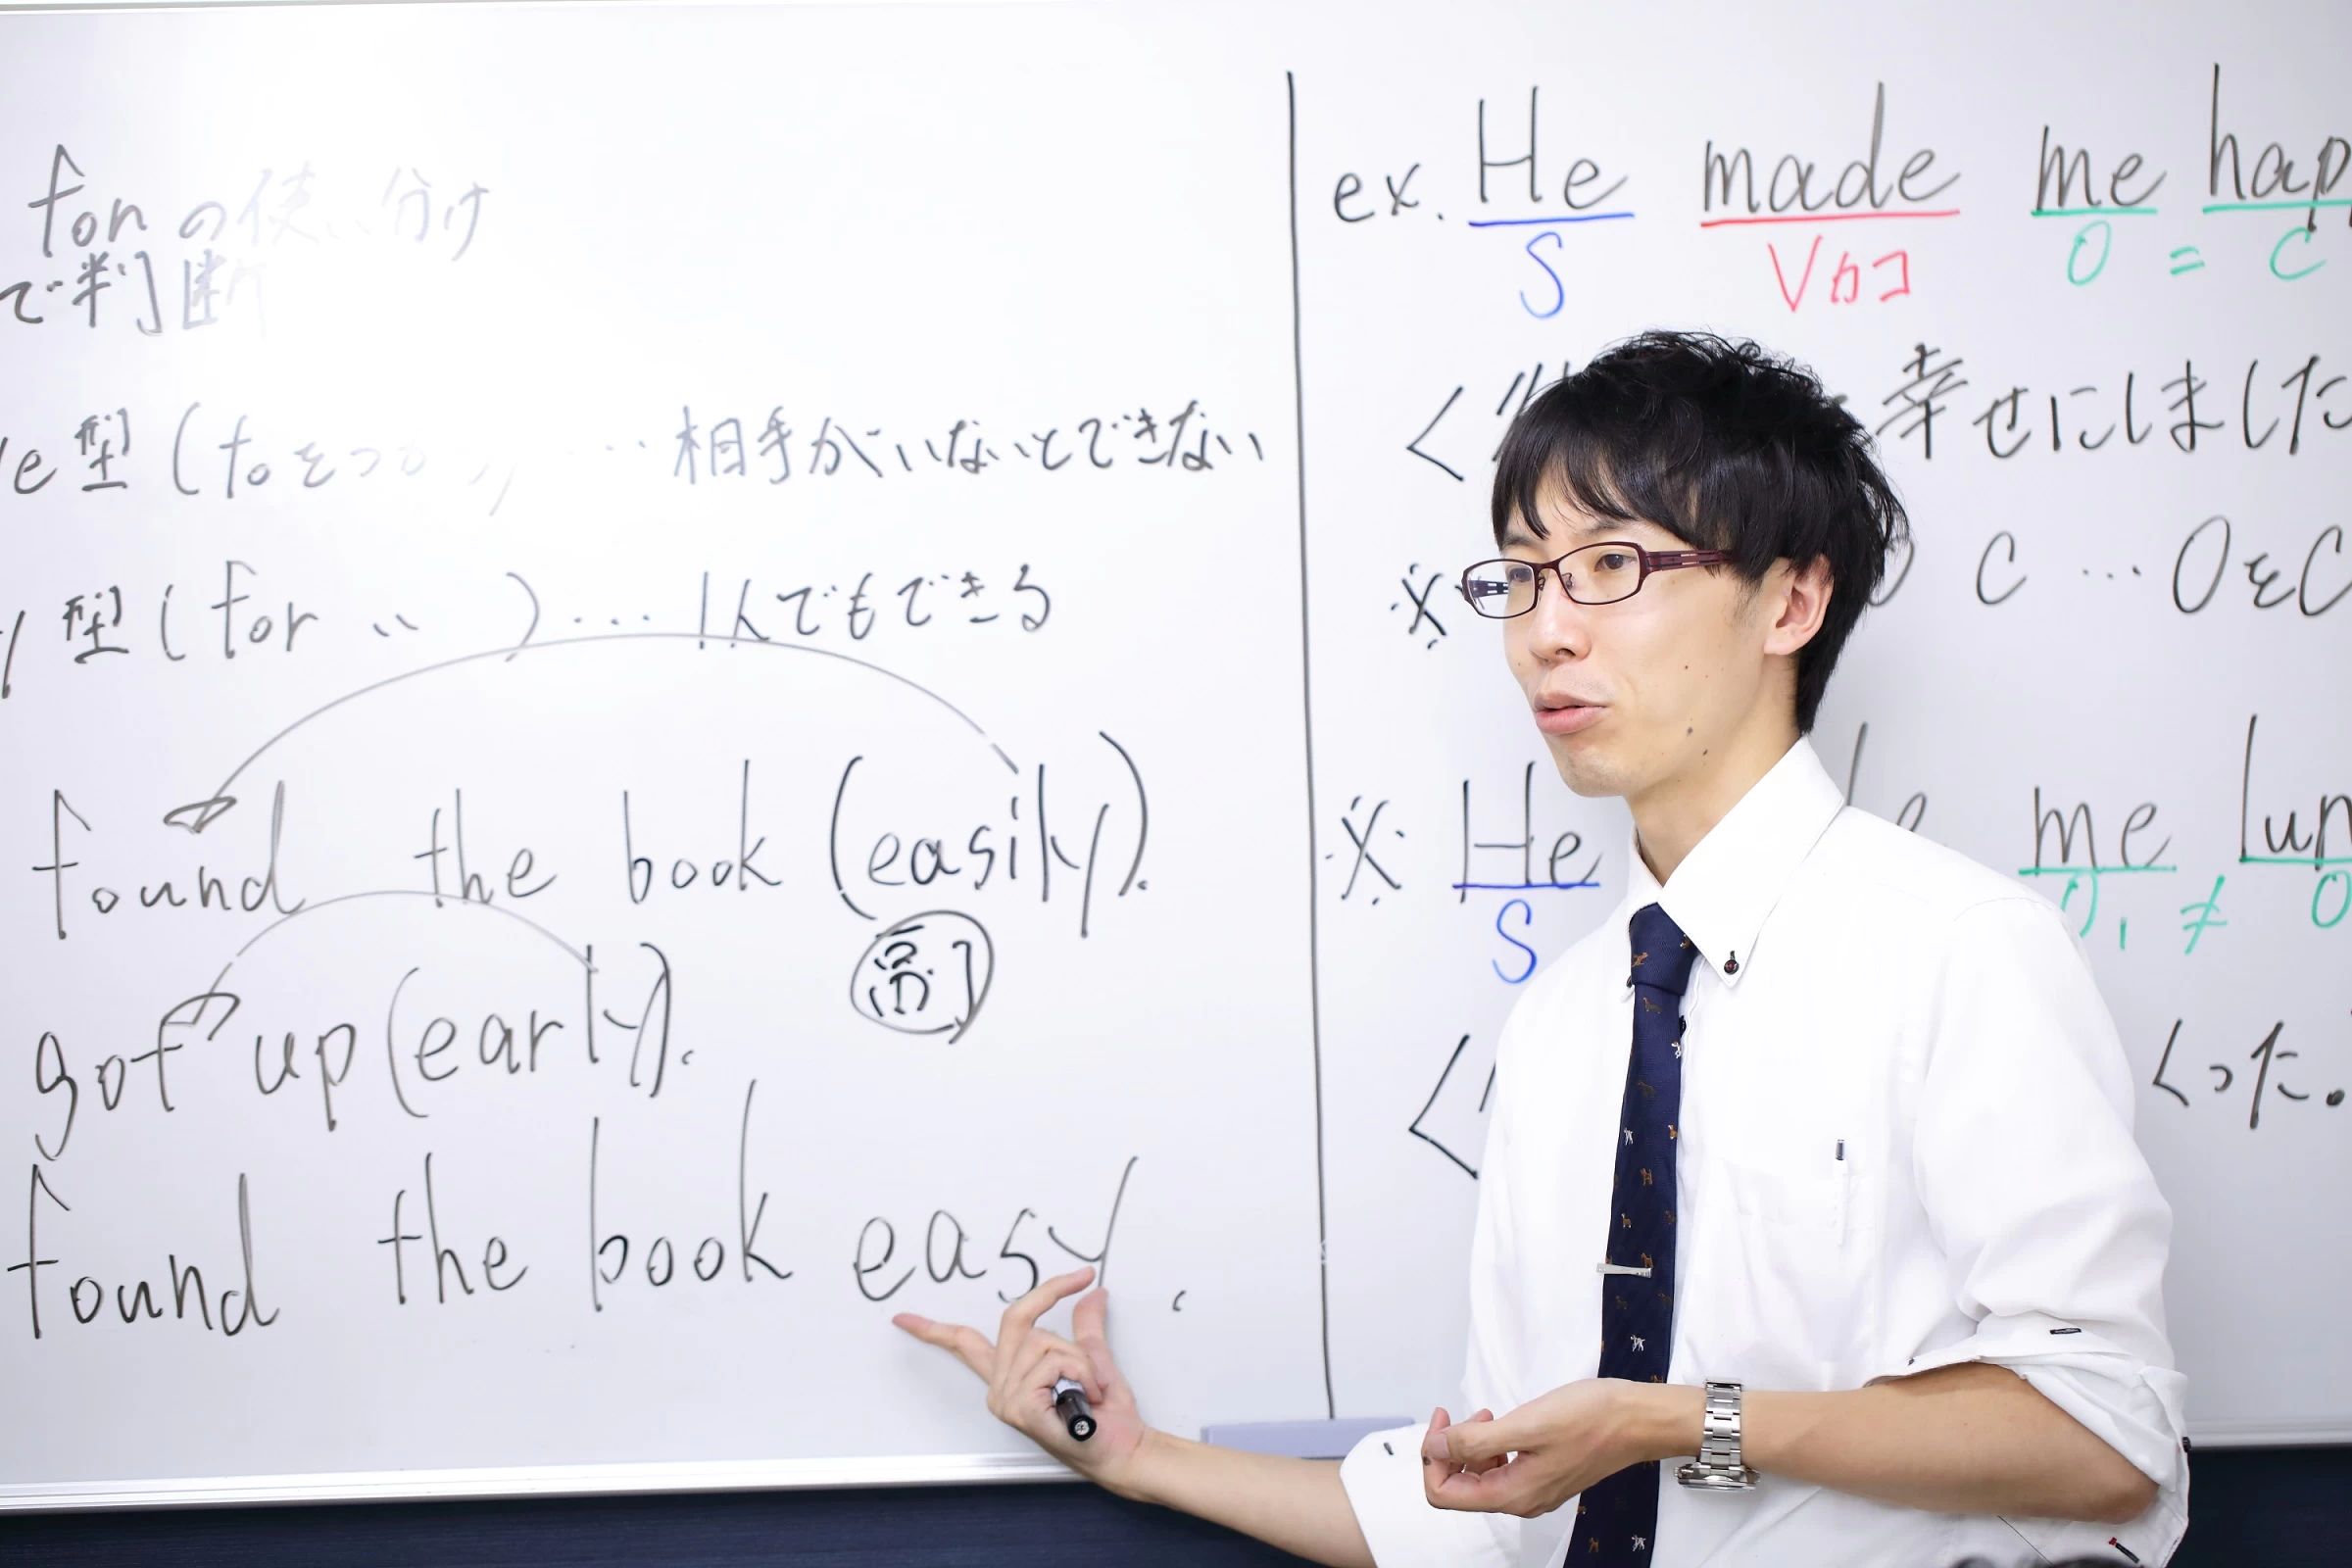 for の使い分け
で判断
e型 (toをつかう) … 相手がいないとできない
y型 (for 〃 ) … 1人でもできる
found the book (easily).
副
got up (early).
found the book easy.
ex. He made me hap
S Vカコ O = C
< 幸せにしました
※ O C … OをC
※ He me lun
S O₁ ≠ O
< くった。